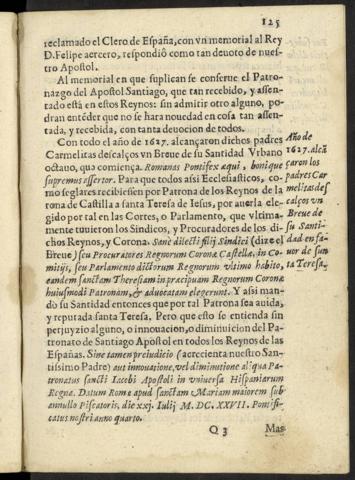 125
reclamado el Clero de España, con vn memorial al Rey
D. Felipe aercero, respondiò como tan deuoto de nues-
tro Apostol.
Al memorial en que suplican se conserue el Patro-
nazgo del Apostol Santiago, que tan recebido, y assen-
tado está en estos Reynos: sin admitir otro alguno, po-
dran enteder que no se hara nouedad en cosa tan assen-
tada, y recebida, con tanta deuocion de todos.
Con todo el año de 1627. alcançaron dichos padres
Carmelitas descalços vn Breue de su Santidad Vrbano
octauo, que comiença. Romanus Pontifex aqui, bonique
supremus assertor. Para que todos assi Eclesiasticos, co-
mo seglares recibiessen por Patrona de los Reynos de la
rona de Castilla a santa Teresa de Iesus, por auerla ele-
gido por tal en las Cortes, o Parlamento, que vltima-
mente tuuieron los Sindicos, y Procuradores de los di-
chos Reynos, y Corona. Sanè dilecti filij Sindici (dize el
Breue) seu Procuratores Regnorum Coronæ Castellæ, in Co-
mitijs, seu Parlamento dictorum Regnorum vltimo habito,
eandem sanctam Theresiam in præcipuam Regnorum Coronæ
huiusmodi Patronam, & aduocatam elegerunt. Y assi man-
do su Santidad entonces que por tal Patrona sea auida,
y reputada santa Teresa. Pero que esto se entienda sin
perjuyzio alguno, o innouacion, o diminuicion del Pa-
tronato de Santiago Apostol en todos los Reynos de las
Españas. Sine tamen preiudicio (acrecienta nuestro San-
tissimo Padre) aut innouatione, vel diminutione aliqua Pa-
tronatus sancti Iacobi Apostoli in vniuersa Hispaniarum
Regna. Datum Romæ apud sanctam Mariam maiorem sub
annullo Piscatoris, die xxj. Iulij M. DC. XXVII. Pontifi-
catus nostri anno quarto.
Q 3 Mas
Año de
1627. alcan
çaron los
padres Car
melitas des
calços vn
Breue de
su Santi-
dad en fa-
uor de san
ta Teresa.